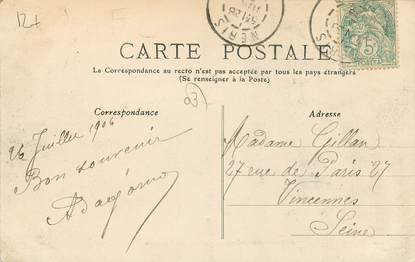 12+
NERIS
NERIS
5
CARTE POSTALE
La Correspondance au recto n'est pas acceptée par tous les pays étrangers
(Se renseigner à la Poste)
23
Correspondance
Adresse
26 Juillet 1906
Bon souvenir
Madame Gillan
27 rue de Paris 27
Vincennes
Seine